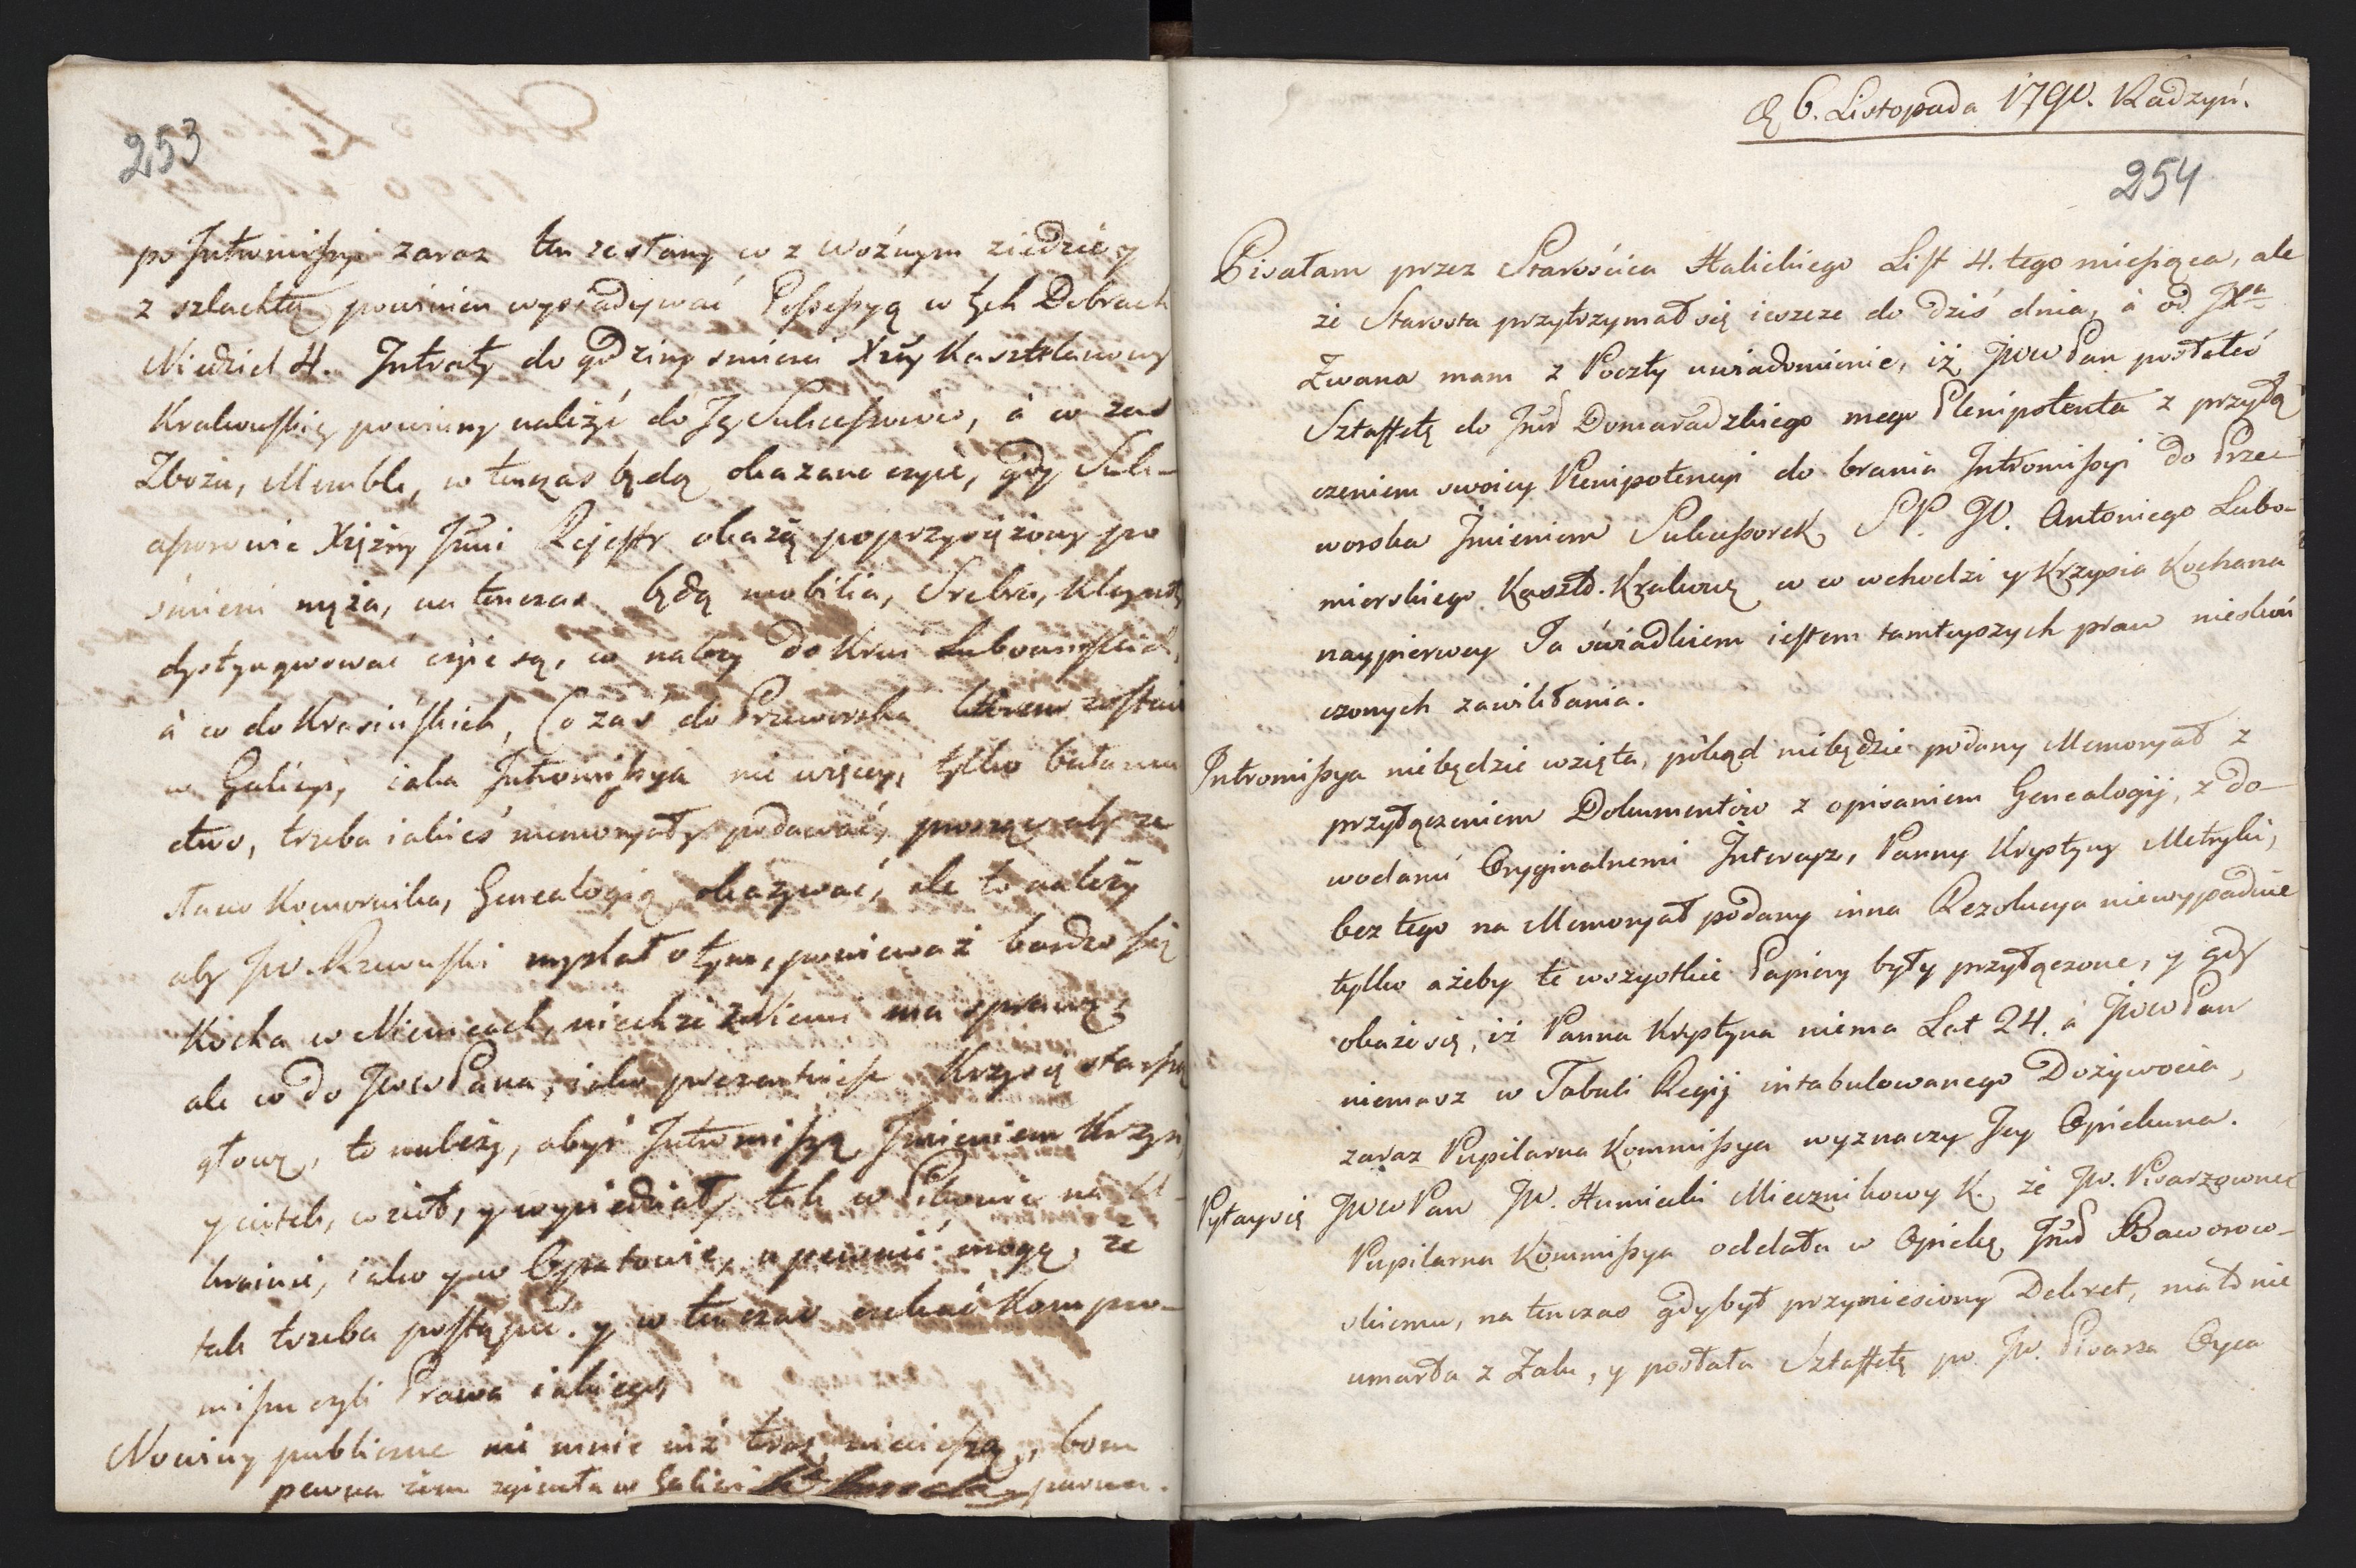 253
po Intromissyi zaraz ten zesłany co z woźnym ziedzie y
z szlachtą powinien wysiadywać Possessyą w tych Dobrach
Niedziel 4. Intraty do godziny smierci Xżny Kasztelanowy
Krakowskiey powinny należyć do Jey Sukcessorow, á co zas
Zboża, Meuble, w tenczas będą okazane czyie, gdy Suk-
cessorowie Xiężny Jmci Rejestr okażą poprzysiężony po
śmierci męża, na tenczas będą mobilia, Srebra, Kleynoty
dystyngwować czyie są, co należy do Krwi Lubomirskich,
á co do Krasińskich, Co zaś do Przeworska
w Galicyi, iaka Intromissya nie więcey, tylko
ctwo, trzeba iakieś memoryały podawać, prosząc aby ze
słano Komornika, Genealogią okazywać, ale to należy
aby Jw. Rzewuski myslał o tym, ponieważ bardzo się
Kocha w Niemcach, niechże z Niemi ma sprawę,
ale co do JwwPana, iako
głowę, to należy, abyś Intromissyą Jmieniem Krzysi
y ciotek, wziął, y wysiedział, tak w
krainie, iako y w Opatowie, upewnić mogę, że
tak trzeba postąpić. y w tenczas czekać Kompro-
missu czyli Prawa iakiego,
Nowiny publiczne nie mnie iuż teraz nie cieszą, bom
pewna żem zginęła w Galicii
D. 6. Listopada 1790. Radzyń.
254
Pisałam przez Starościca Halickiego List 4. tego miesiąca, ale
że Starosta przytrzymał się ieszcze do dziś dnia, á od JXa
Zwana mam z Poczty uwiadomienie, iż JwwPan posłałeś
Sztaffetę do Jmć Domaradzkiego mego Plenipotenta z przyłą
czeniem swoiey Plenipotencyi do brania Intromissyi do Prze-
worska Jmieniem Sukcessorek, SP. JO. Antoniego Lubo-
mirskiego Kasztl. Krakowg w co wchodzi y Krzysia Kochana
naypierwey Ja świadkiem iestem tamtyszych praw nieskoń
czonych zawikłania.
Intromissya niebędzie wzięta, pokąd niebędzie podany Memoryał z
przyłączeniem Dokumentów z opisaniem Genealogij, z do-
wodami Oryginalnemi Intercyz, Panny Krystyny Metryki,
bez tego na Memoryał podany inna Rezolucya niewypadnie
tylko ażeby te wszystkie Papiery były przyłączone, y gdy
okaże się, iż Panna Krystyna niema Lat 24. á JwwPan
niemasz w Tabuli Regij intabulowanego Dożywocia,
zaraz Pupilarna Kommissya wyznaczy Jey Opiekuna.
Pytay się JwwPan Jw. Humiecki Miecznikowy K. że Jw. Pisarzownę
Pupilarna Kommissya oddała w Opiekę Jmć Baworow-
skiemu, na tenczas gdy był przyniesiony Dekret, mało nie
umarła z Żalu, y posłała Sztaffetę po Jw. Pisarza Oyca